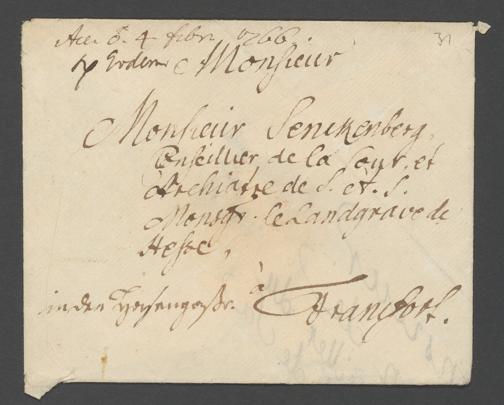 Acc. d. 4 febr. 1766 31
Monsieur
Monsieur Senckenberg,
Conseillier de la Cour et
Archiatre de S. A. S.
Monsgr. le Landgrave de
Hesse,
à
in der Hasengasse. Francfort.